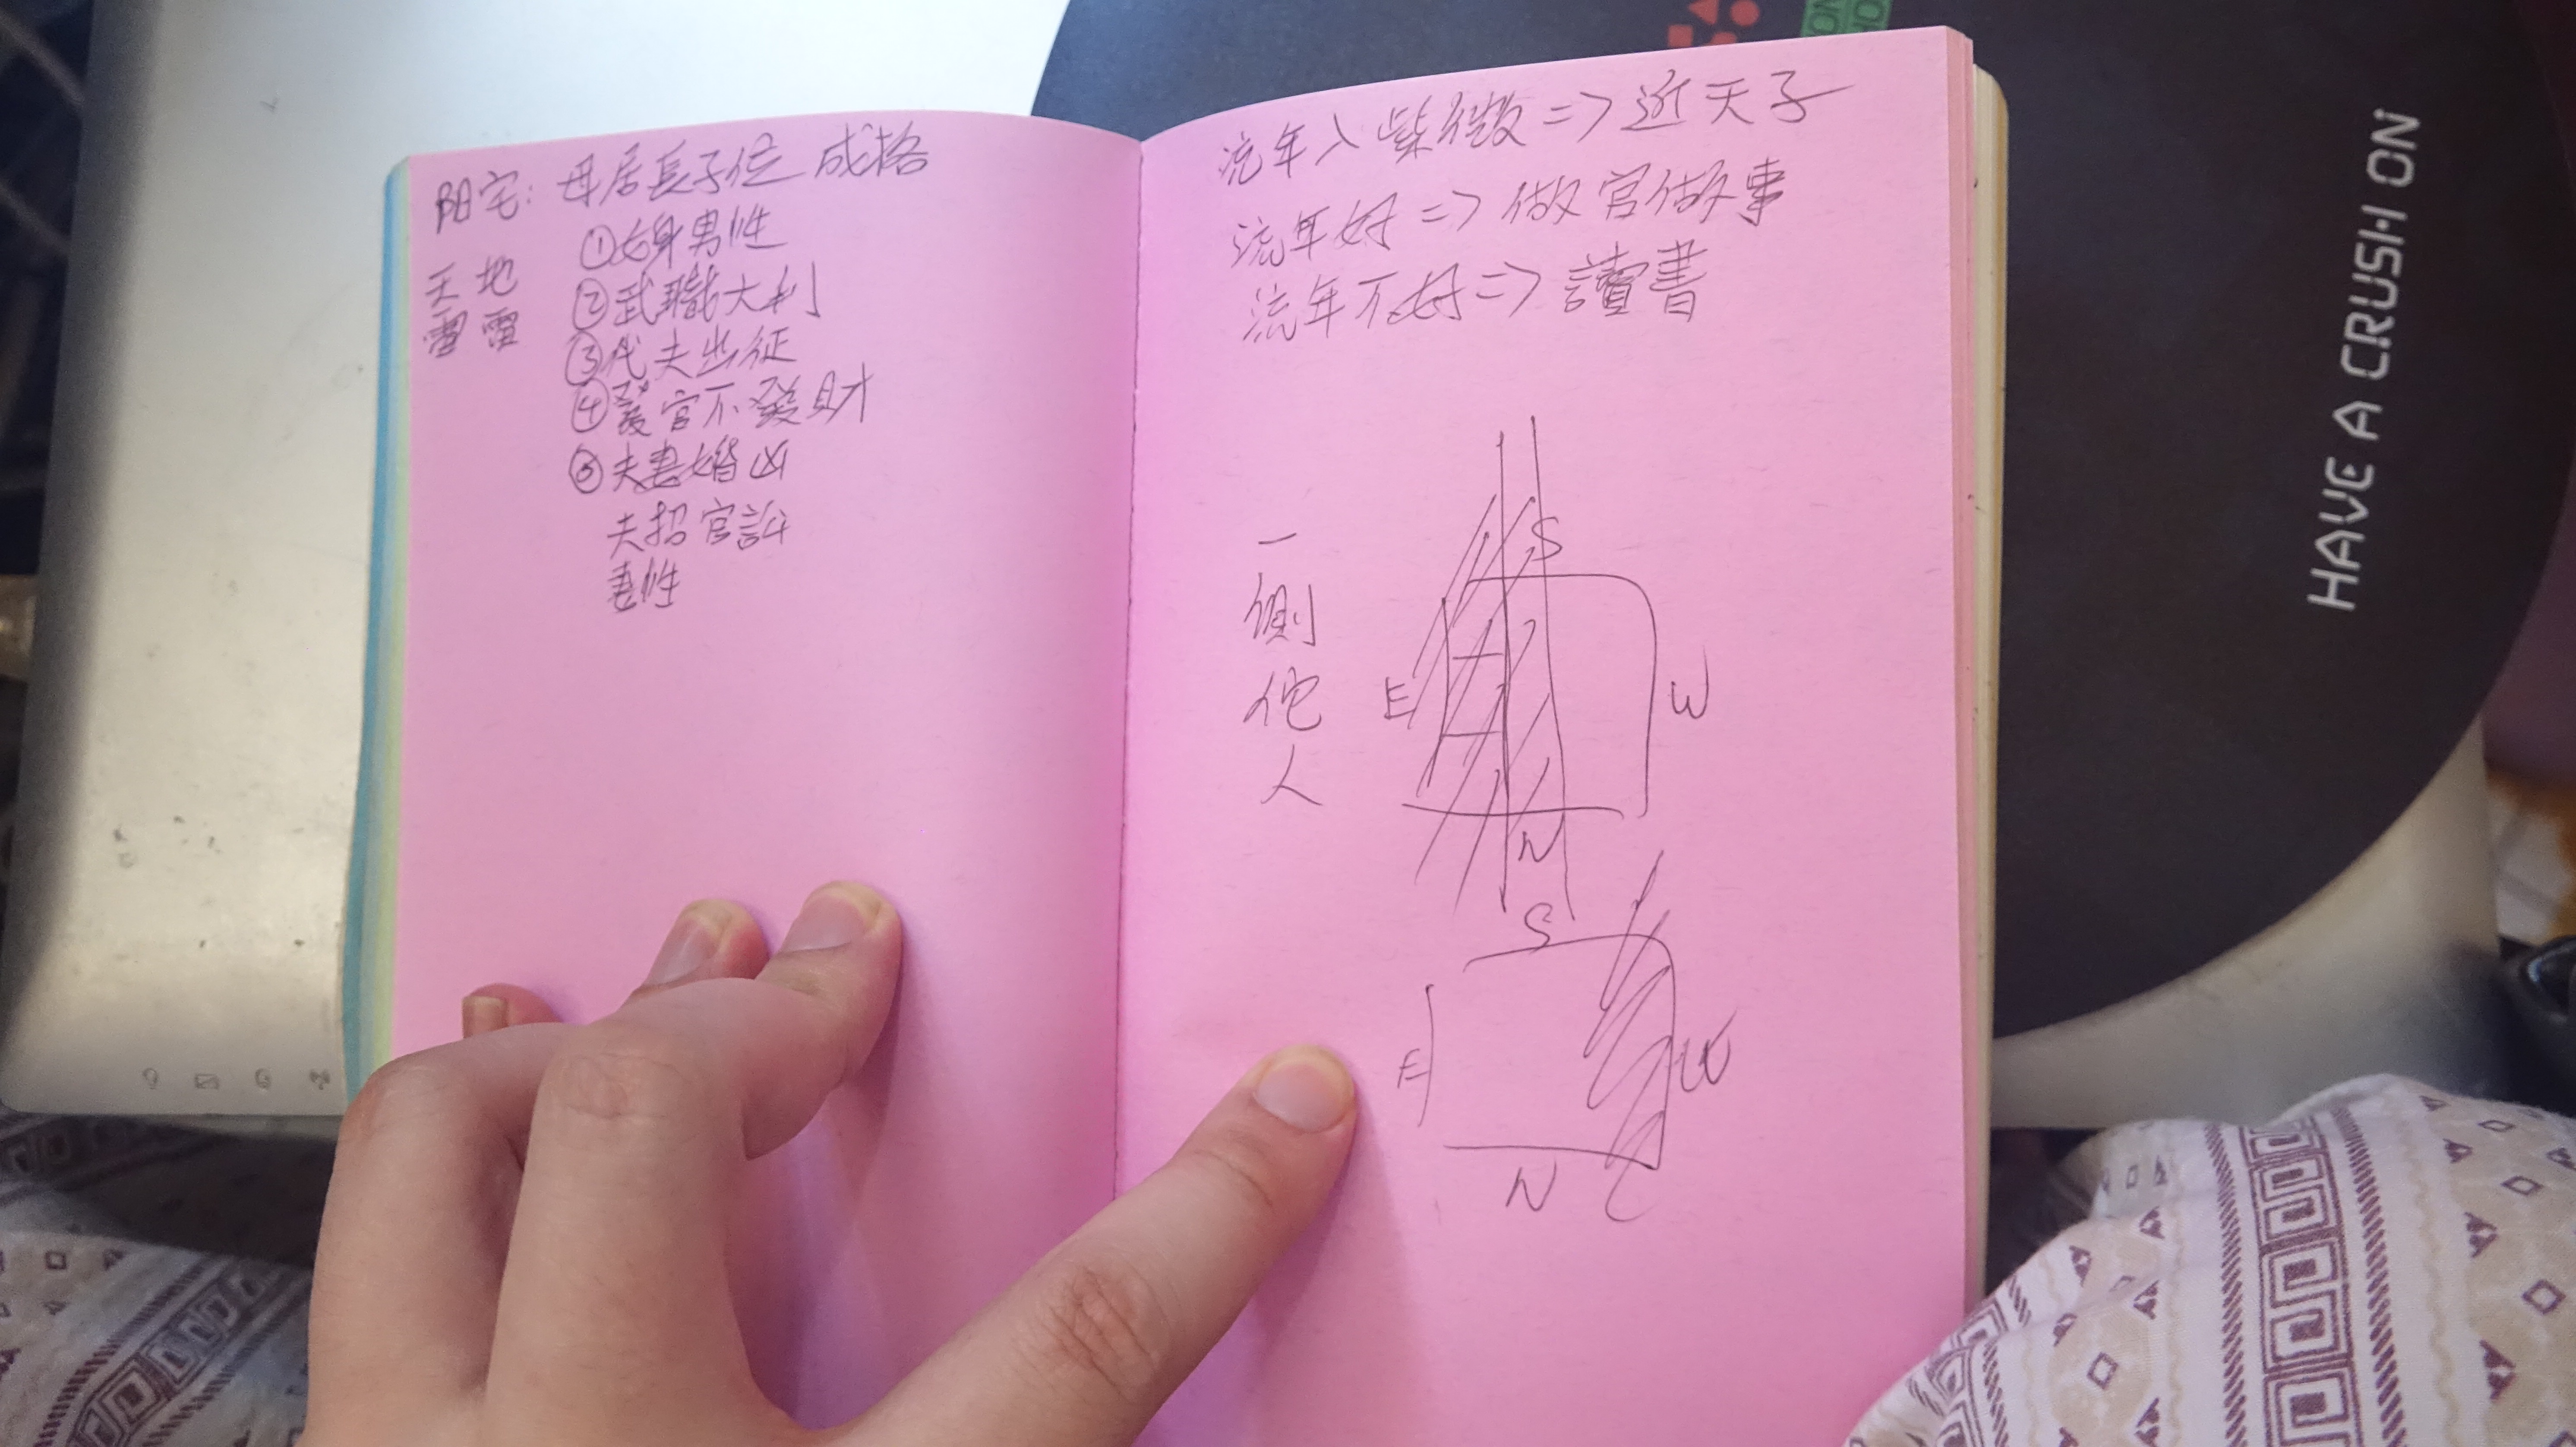 阳宅：母居長子位 成格
①女身男性
②武職大利
③代夫出征
④發官不發財
⑤夫妻婚凶
夫招官訴
妻性
天 地
雷 雷
流年入紫微=>近天子
流年好=>做官做事
流年不好=>讀書
一
側
佗
人
S
E
W
N
S
E
W
N
HAVE A CRUSH ON